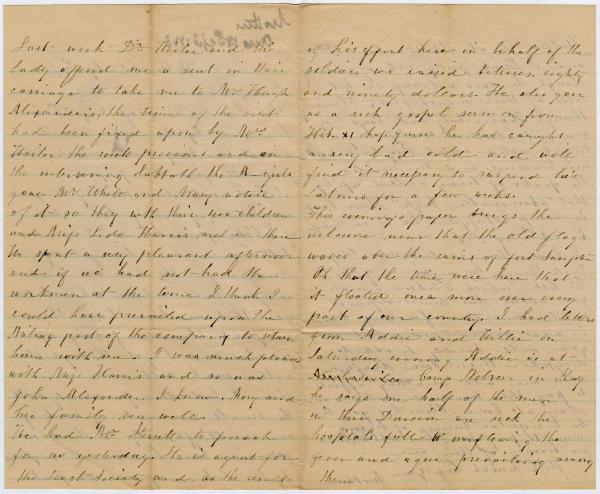 Last week Dr. Weiler and his
Lady offered me a seat in their
carriage to take me to Mr Hugh
Alexanders, the time of the visit
had been fixed upon by Mrs
Weiler the week previous and on
the intervening Sabbath the A girls
gave Mr White and Mary notice
of it so they with their two children
and Miss Lida Harris met us there
We spent a very pleasant afternoon
and if we had not had the
workmen at the time I think I
could have prevailed upon the
Milroy part of the company to return
home with me. I was much pleased
with Miss Harris and so was
John Alexander. I know. Mary and
her family are well.
We had Mr. Sterrett to preach
for us yesterday. He is agent for
the tract Society and as the result
of his effort here in behalf of the
soldiers we raised between eighty
and ninety dollars. He also gave
us a rich gospel sermon from
Heb. XI chap. verse he has caught
a very bad cold and will
find it necessary to suspend his
labours for a few weeks.
This evening's paper brings the
welcome news that the old flag
waves over the ruins of fort Sumpter
Oh that the time were here that
it floated once more over every
part of our country. I had letters
from Addie and Willie on
Saturday evening Addie is at
Camp Nelson in Ky
he says one half of the men
in their Division are sick the
hospitals full to overflowing the
fever and ague prevailing among
them